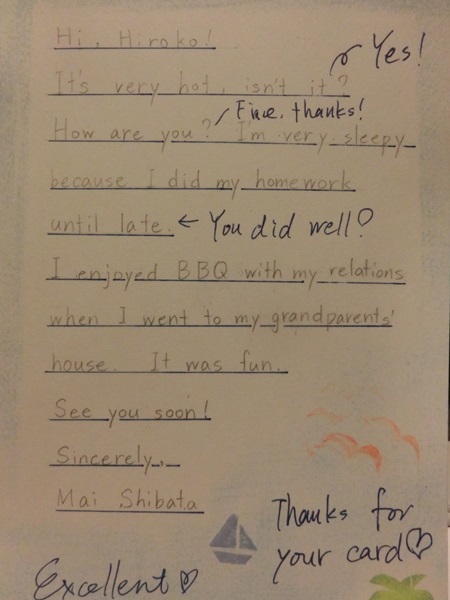 Hi, Hiroko!
Yes!
It's very hot, isn't it?
Fine, thanks!
How are you? I'm very sleepy
because I did my homework
until late. ← You did well?
I enjoyed BBQ with my relations
when I went to my grandparents'
house. It was fun.
See you soon!
Sincerely,
Mai Shibata
Thanks for
your card♡
Excellent♡